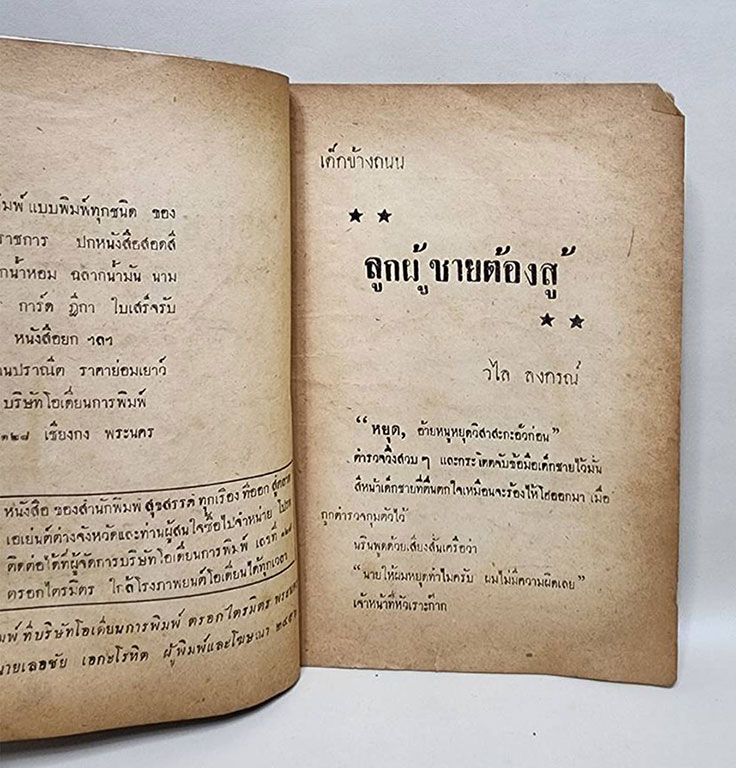 พิมพ์ แบบพิมพ์ทุกชนิด ของ
ราชการ ปกหนังสือสอดสี
น้ำหอม ฉลากน้ำมัน นาม
การ์ด ฎีกา ใบเสร็จรับ
หนังสือยก ฯลฯ
ปราณีต ราคาย่อมเยาว์
บริษัทโอเดียนการพิมพ์
เชียงกง พระนคร
หนังสือ ของสำนักพิมพ์ สุขสรรค์ ทุกเรื่อง ที่ออก
เอเย่นต์ต่างจังหวัดและท่านผู้สนใจซื้อไปจำหน่าย
ติดต่อได้ที่ผู้จัดการบริษัทโอเดียนการพิมพ์ เลขที่
ตรอกไตรมิตร ใกล้โรงภาพยนต์โอเดียนได้ทุกเวลา
ที่บริษัทโอเดียนการพิมพ์ ตรอกไตรมิตร
นายเลอชัย เอกะโรหิต ผู้พิมพ์และโฆษณา
เด็กข้างถนน
ลูกผู้ชายต้องสู้
วไล ลงกรณ์
“หยุด, อ้ายหนูหยุดวิสาสะกะอั๊วก่อน”
ตำรวจวิ่งสวบ ๆ และกระโดดจับข้อมือเด็กชายไว้มั่น
สีหน้าเด็กชายที่ตื่นตกใจเหมือนจะร้องไห้โฮออกมา เมื่อ
ถูกตำรวจกุมตัวไว้
นรินพูดด้วยเสียงสั่นเครือว่า
“นายให้ผมหยุดทำไมครับ ผมไม่มีความผิดเลย”
เจ้าหน้าที่หัวเราะก๊าก